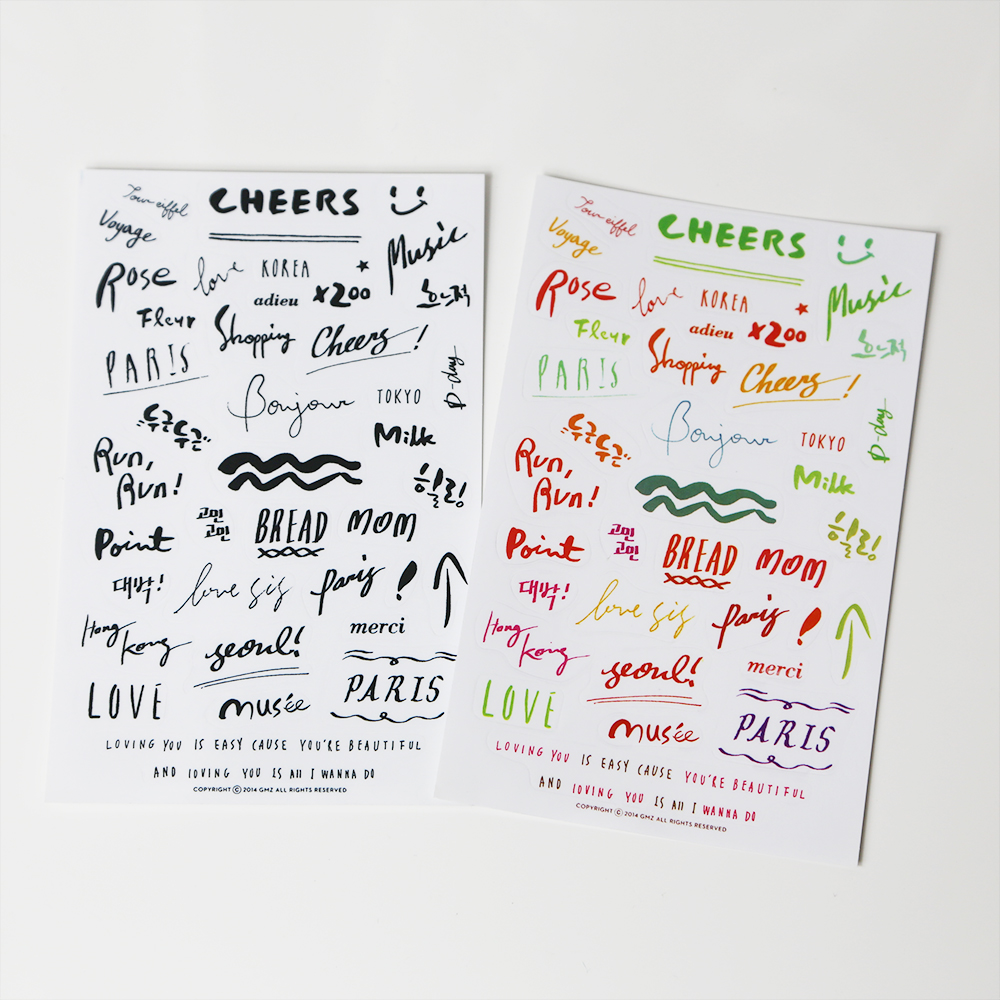 Tour eiffel
CHEERS
Voyage
Music
Rose
love
KOREA
adieu
x200
흐느적
Fleur
Shopping
Cheers!
PARIS
D-day
Bonjour
TOKYO
"두근두근"
Milk
Run,
Run!
힐링!
Point
고민
고민
BREAD
MOM
대박!
love sis
Paris!
Hong
Kong
seoul!
merci
LOVE
musée
PARIS
LOVING YOU IS EASY CAUSE YOU'RE BEAUTIFUL
AND lOVING YOU IS All I WANNA DO
COPYRIGHT ⓒ 2014 GMZ ALL RIGHTS RESERVED
Tour eiffel
CHEERS
Voyage
Music
Rose
love
KOREA
adieu
x200
흐느적
Fleur
Shopping
Cheers!
PARIS
D-day
Bonjour
TOKYO
"두근두근"
Milk
Run,
Run!
힐링!
Point
고민
고민
BREAD
MOM
대박!
love sis
Paris!
Hong
Kong
seoul!
merci
LOVE
musée
PARIS
LOVING YOU IS EASY CAUSE YOU'RE BEAUTIFUL
AND lOVING YOU IS All I WANNA DO
COPYRIGHT ⓒ 2014 GMZ ALL RIGHTS RESERVED